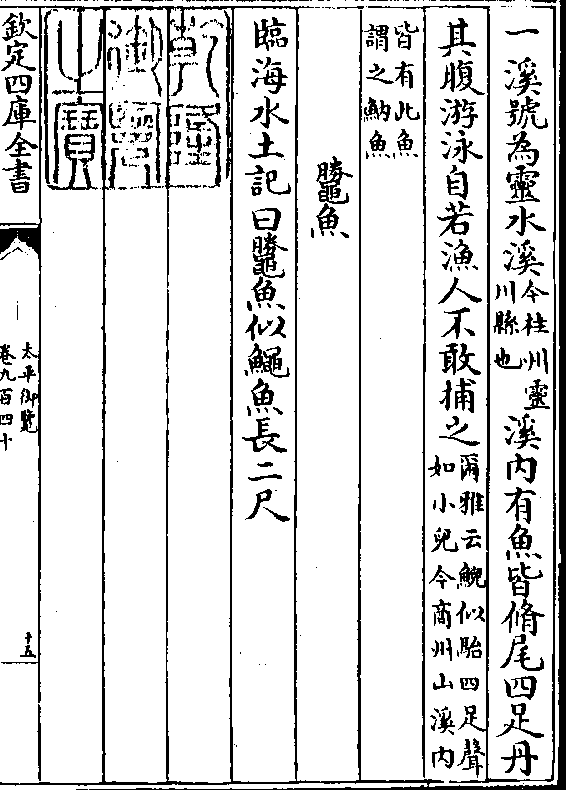 一溪號為靈水溪今桂州靈川縣也溪内有魚皆脩尾四足丹
其腹游泳自若漁人不敢捕之爾雅云鯢似鮎四足聲如小兒今商州山溪内
皆有此魚謂之魶魚
䲢魚
臨海水土記曰䲢魚似䱆魚長二尺
乾隆御覽之寶
欽定四庫全書
太平御覽
卷九百四十
十五